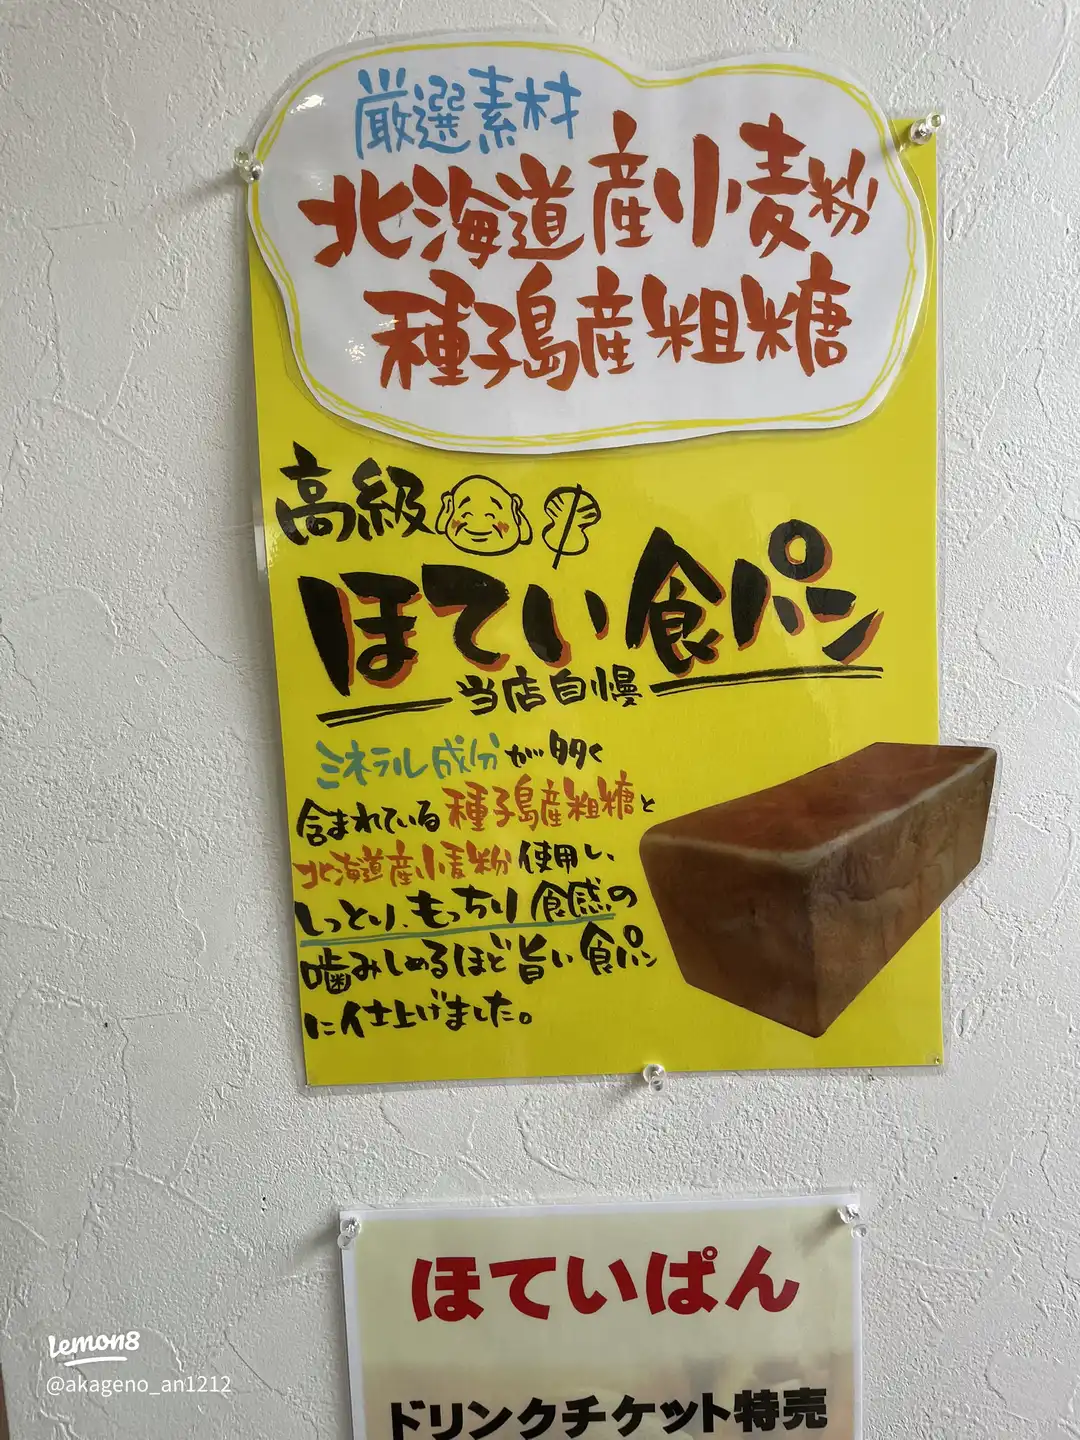 厳選素材
北海道産小麦粉
種子島産粗糖
高級
ほてい食パン
当店自慢
ミネラル成分が多く
含まれている種子島産粗糖と
北海道産小麦粉使用し、
しっとり、もっちり食感の
噛みしめるほど旨い食パン
に仕上げました。
ほていぱん
ドリンクチケット特売
Lemon8
@akageno_an1212